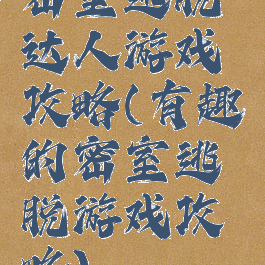 密室逃脱
达人游戏
攻略(有趣
的密室逃
脱游戏攻
略)